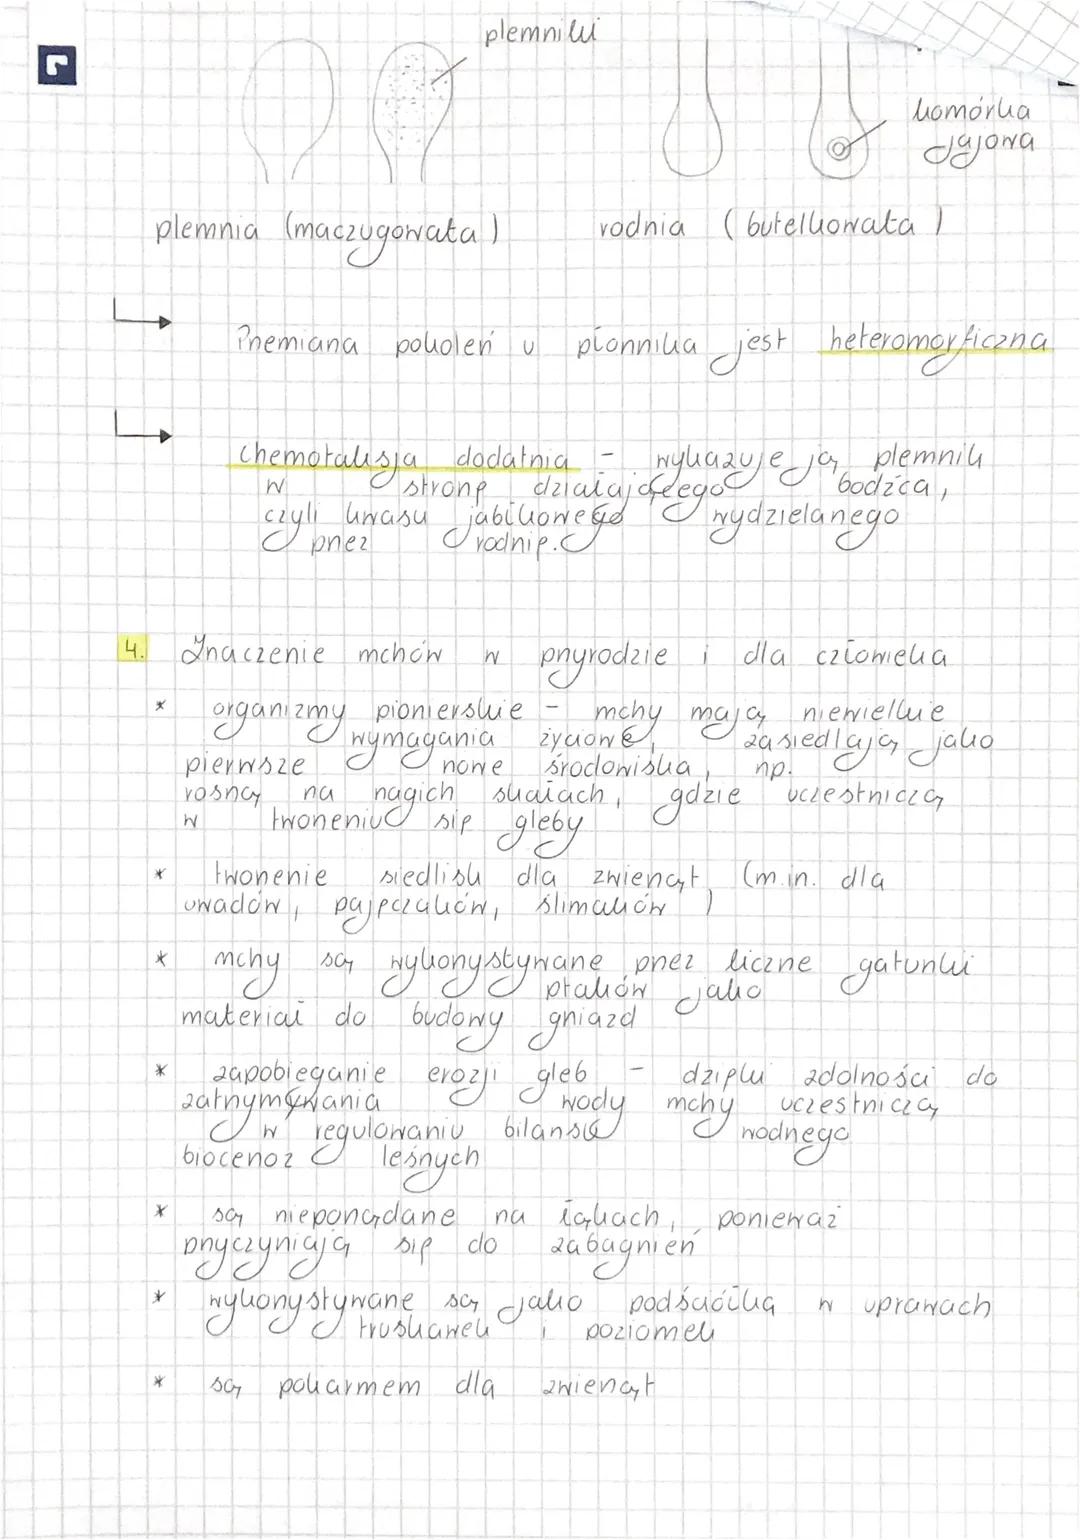 plemniki
komórka
jajowa
plemnia (maczugowata)
rodnia (butelkowata)
Przemiana pokoleń u płonnika jest heteromorficzna
chemotaksja dodatnia - wykazuje ją plemnik
w stronę działającego bodźca,
czyli kwasu jabłkowego wydzielanego
przez rodnię.
4. Znaczenie mchów w przyrodzie i dla człowieka
* organizmy pionierskie - mchy mają niewielkie
wymagania życiowe, zasiedlają jako
pierwsze nowe środowiska, np.
rosną na nagich skałach, gdzie uczestniczą
w tworzeniu się gleby
* tworzenie siedlisk dla zwierząt (m.in. dla
owadów, pajęczaków, ślimaków)
* mchy są wykorzystywane przez liczne gatunki
ptaków jako
materiał do budowy gniazd
* zapobieganie erozji gleb - dzięki zdolności do
zatrzymywania wody mchy uczestniczą
w regulowaniu bilansu wodnego
biocenoz leśnych
* są niepożądane na łąkach, ponieważ
przyczyniają się do zabagnień
* wykorzystywane są jako podściółka w uprawach
truskawek i poziomek
* są pokarmem dla zwierząt